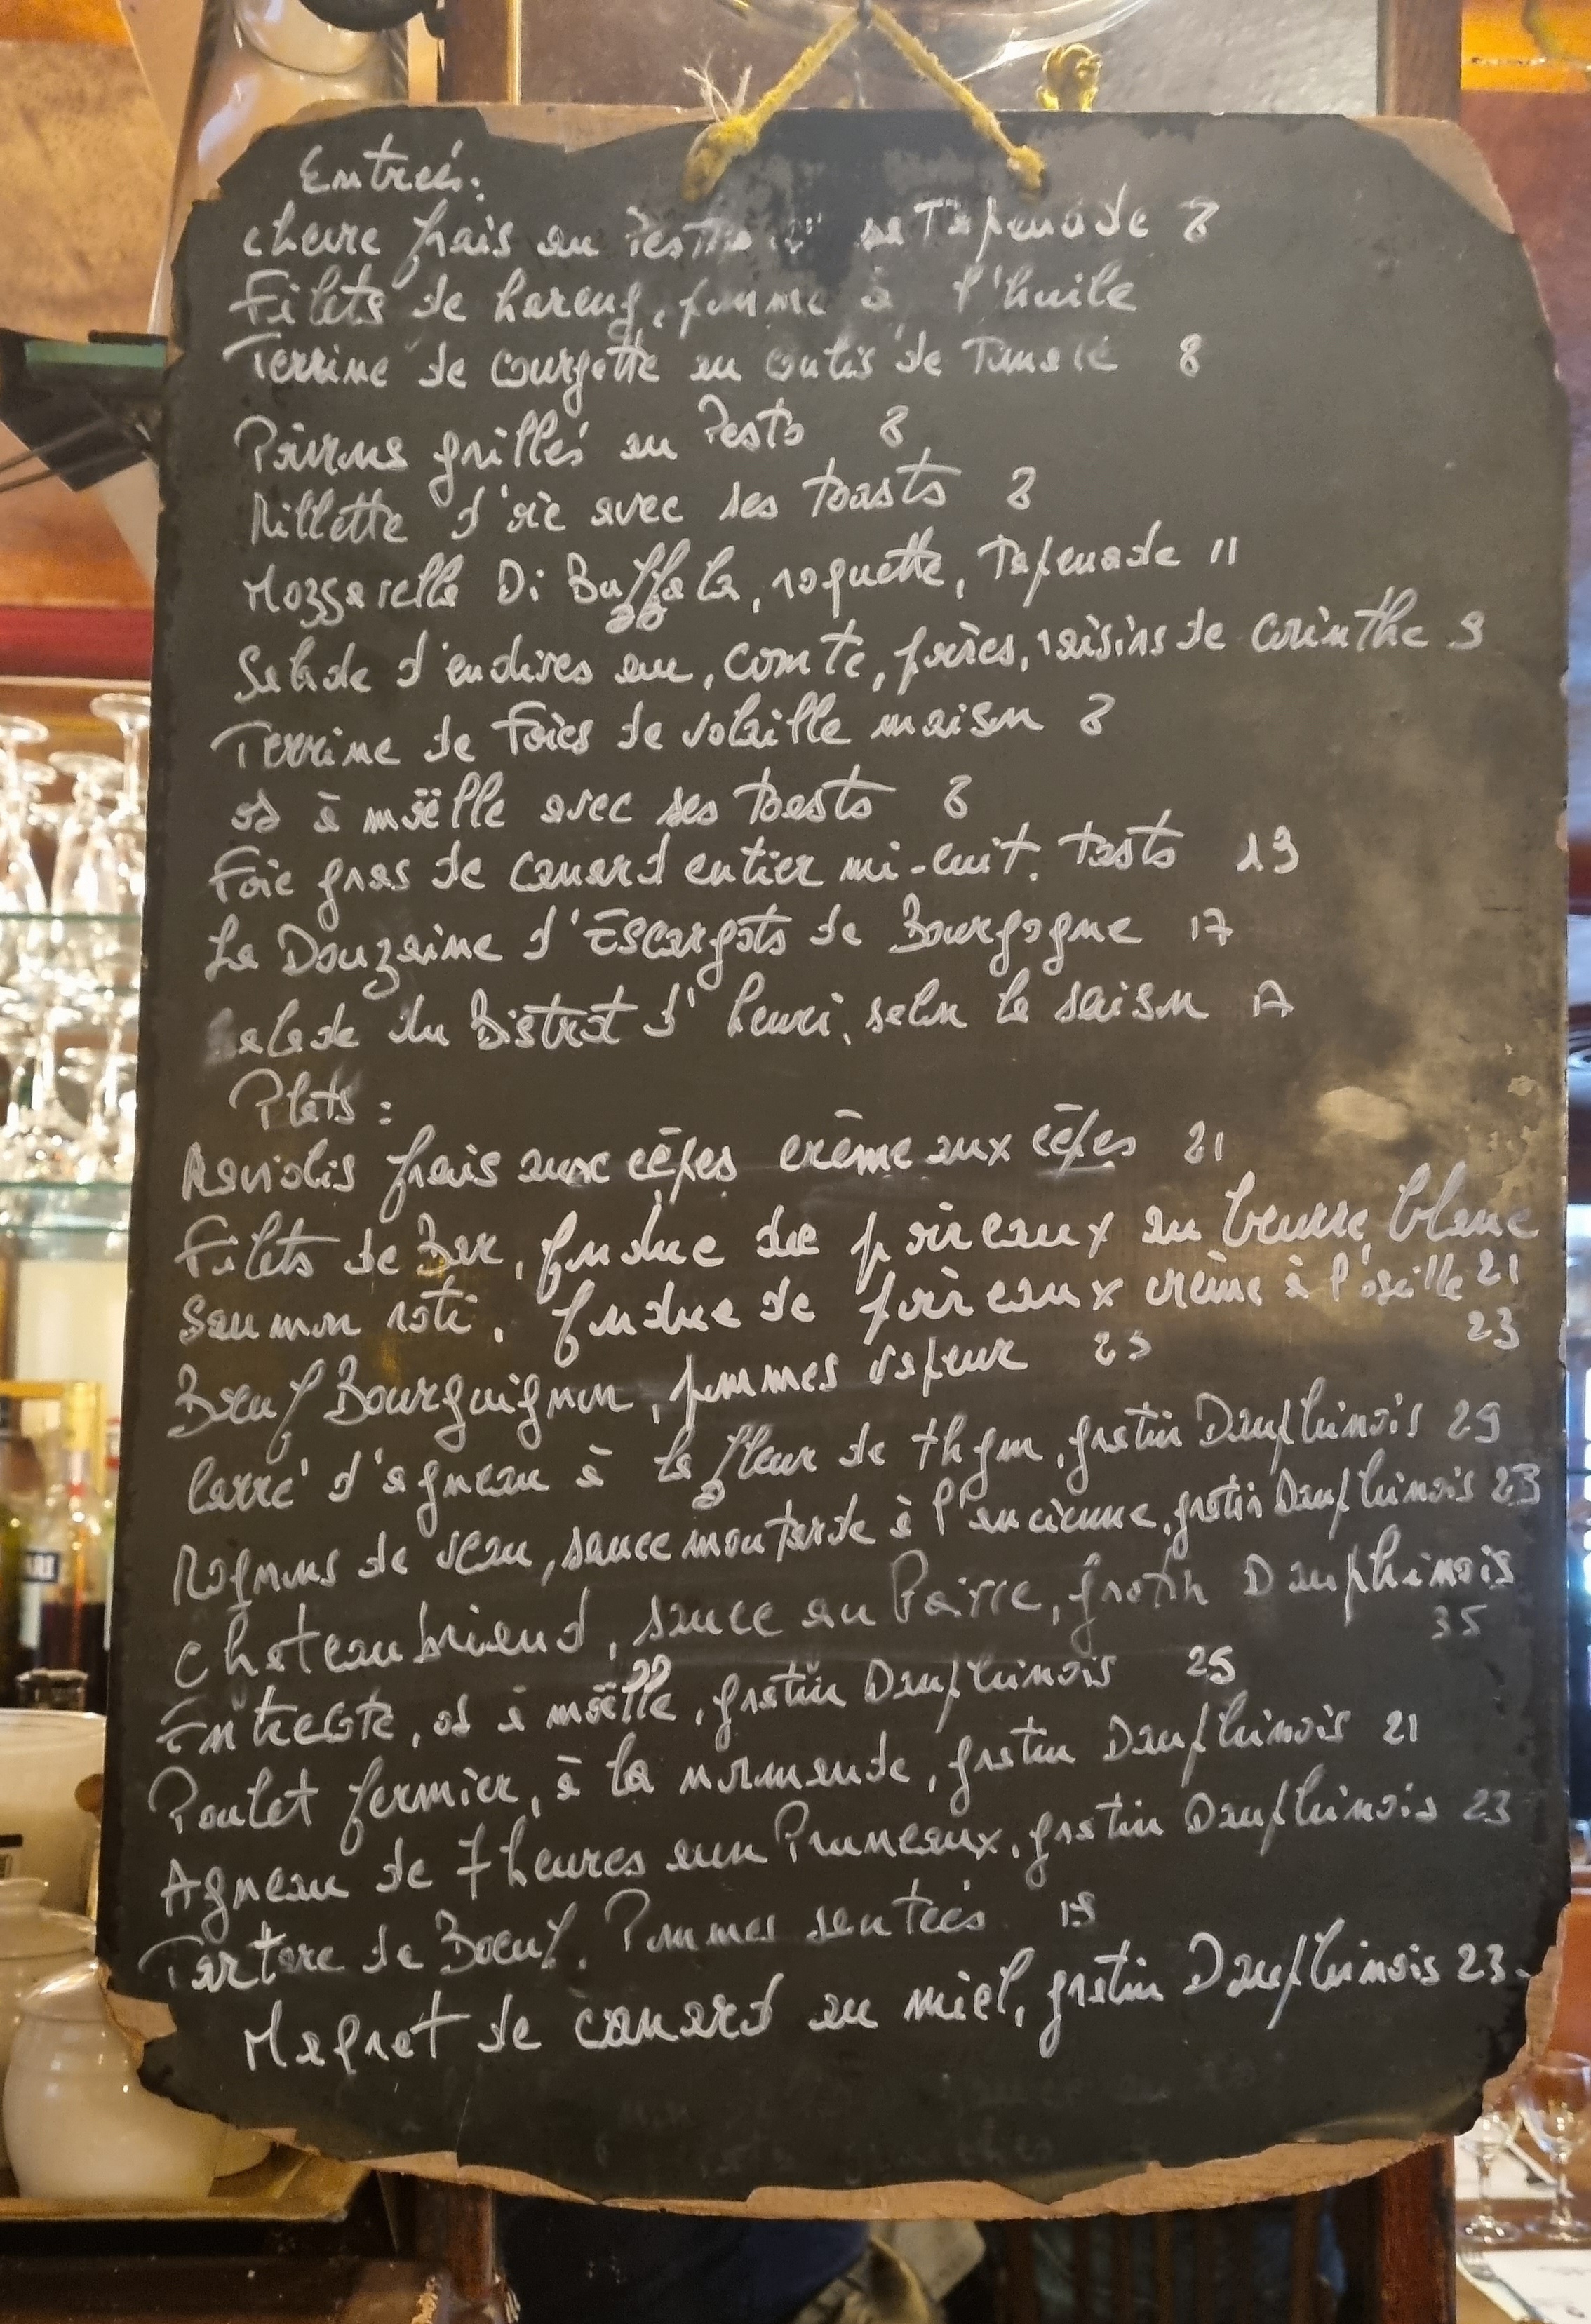 Entrées:
chèvre frais au Pesto sa Tapenade 8
Filets de hareng, pomme à l'huile
Terrine de courgette au coulis de Tomate 8
Poivrons grillés au Pesto 8
Rillette d'oie avec ses toasts 8
Mozzarella Di Buffala, roquette, Tapenade 11
Salade d'endives au, comté, poires, raisins de corinthe 9
Terrine de foies de volaille maison 8
os à moëlle avec ses toasts 8
Foie gras de canard entier mi-cuit. toasts 19
La Douzaine d'Escargots de Bourgogne 17
Salade du Bistrot d'henri, selon la saison 17
Plats:
Raviolis frais aux cèpes crème aux cèpes 21
Filets de Bar, fondue de poireaux au beurre blanc
Saumon roti, fondue de poireaux crème à l'oseille 21
23
Boeuf Bourguignon, pommes vapeur 23
Carré d'agneau à la fleur de thym, gratin Dauphinois 29
Rognons de veau, sauce moutarde à l'ancienne, gratin Dauphinois 23
chateaubriand, sauce au Poivre, gratin Dauphinois
35
Entrecote, os à moëlle, gratin Dauphinois 25
Poulet fermier, à la normande, gratin Dauphinois 21
Agneau de 7 heures aux Pruneaux, gratin Dauphinois 23
Tartare de Boeuf. Pommes sautées
Magret de canard au miel, gratin Dauphinois 23